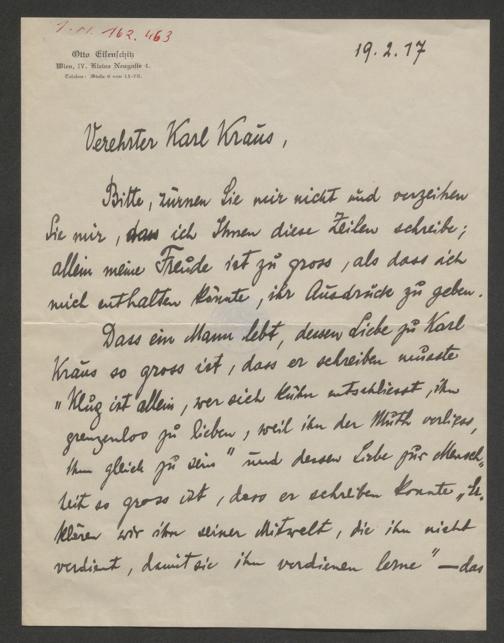 I.N. 162.463
Otto Eisenschitz
Wien, IV. Kleine Neugasse 4.
19.2.17
Verehrter Karl Kraus,
Bitte, zürnen Sie mir nicht und verzeihen
Sie mir, dass ich Ihnen diese Zeilen schreibe;
allein meine Freude ist zu gross, als dass ich
mich enthalten könnte, ihr Ausdruck zu geben.
Dass ein Mann lebt, dessen Liebe zu Karl
Kraus so gross ist, dass er schreiben musste
"Klug ist allein, wer sich kühn entschliesst, ihn
grenzenlos zu lieben, weil ihn der Muth verliess,
ihm gleich zu sein" und dessen Liebe zur Mensch-
heit so gross ist, dass er schreiben konnte "Er-
klären wir ihn seiner Mitwelt, die ihn nicht
verdient, damit sie ihn verdienen lerne" — das